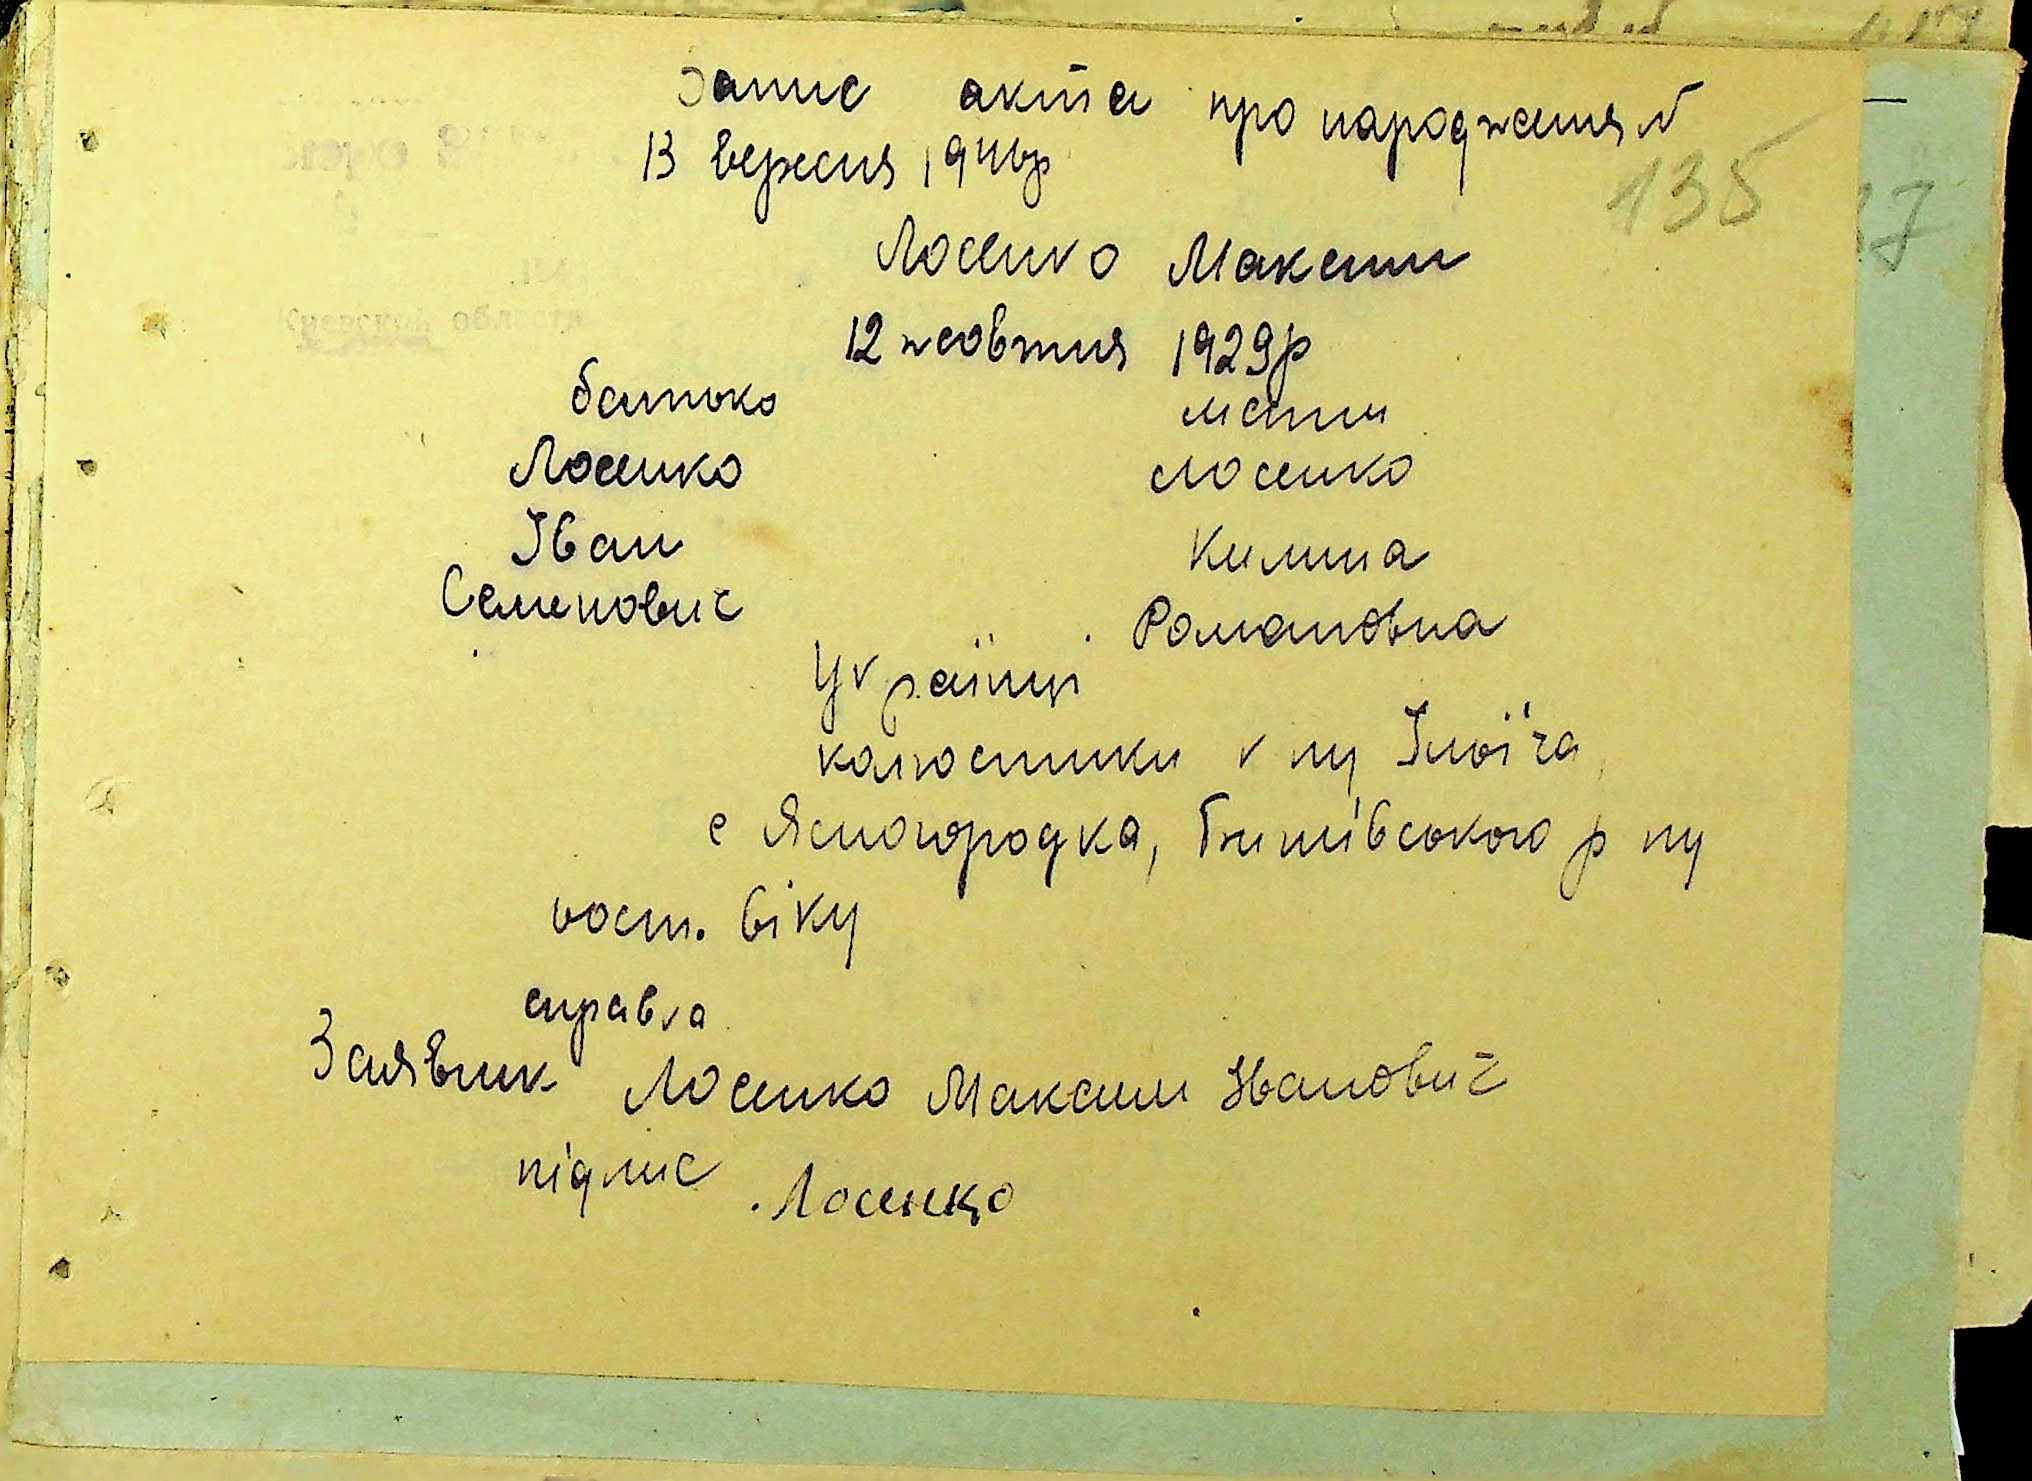 Запис акта про народження №
13 вересня 194
135
37
Лосенко Максим
12 жовтня 1929р
батько мати
Лосенко Лосенко
Іван Килина
Семенович Романовна
Українці
колгоспники к пу Ілліча,
с Ясногородка, Бишівського р ну
пост. віку
справка
Заявник Лосенко Максим Іванович
підпис Лосенко
Киевской области